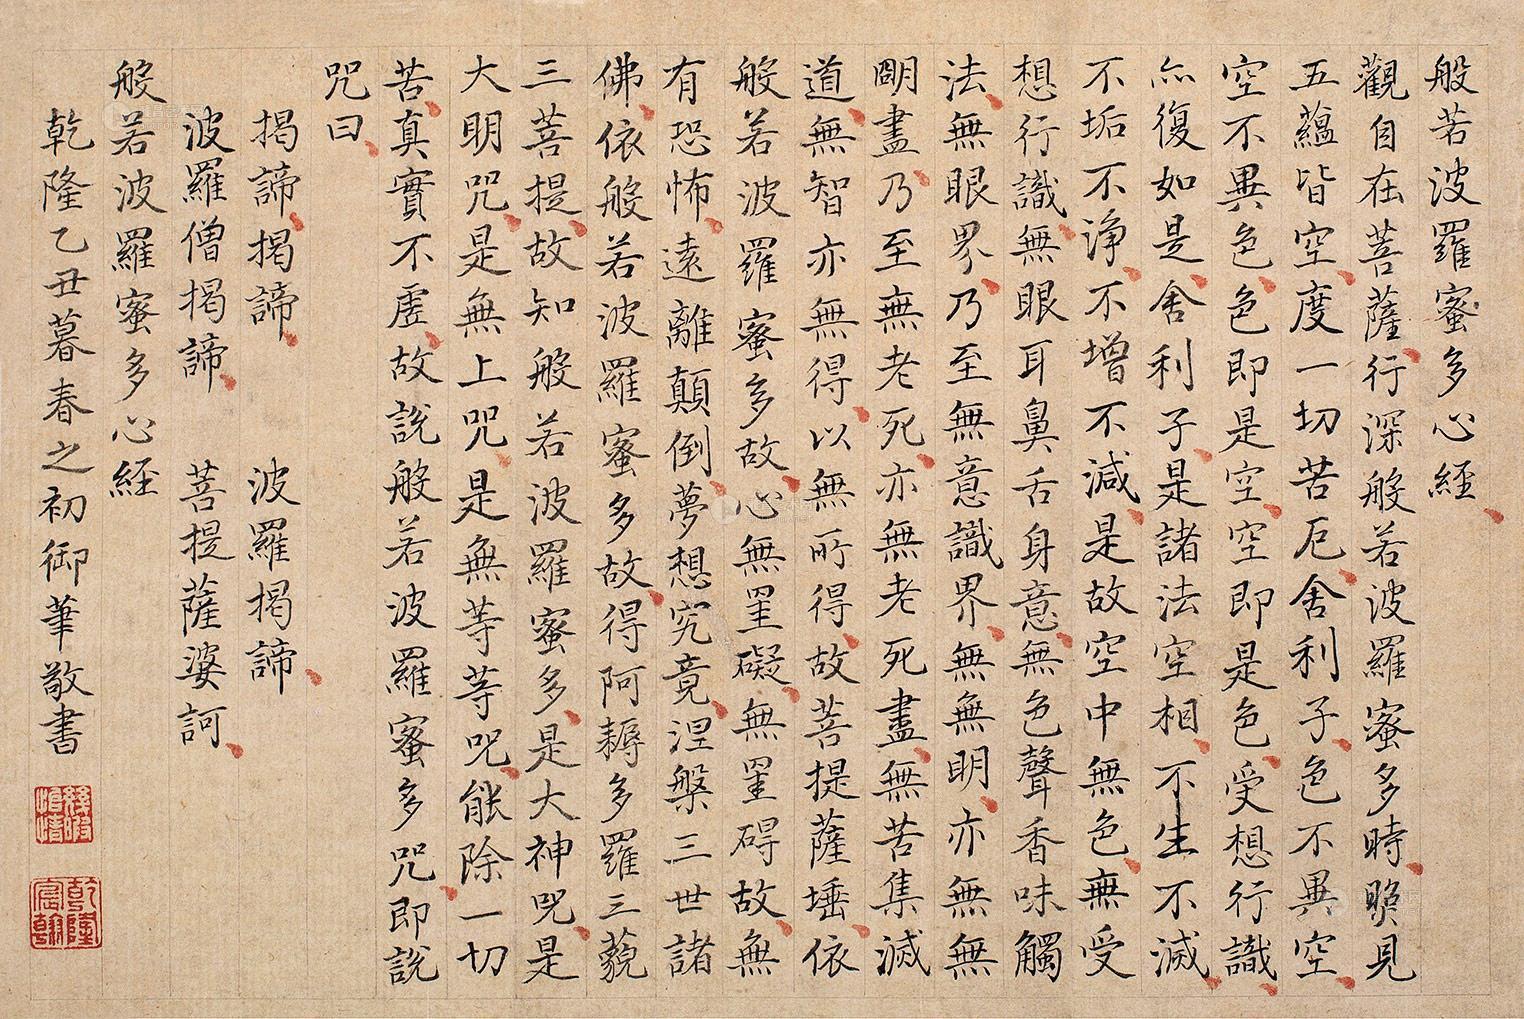 般若波羅蜜多心経
觀自在菩薩行深般若波羅蜜多時照見
五蘊皆空度一切苦厄舍利子色不異空
空不異色色即是空空即是色受想行識
亦復如是舍利子是諸法空相不生不滅
不垢不淨不增不減是故空中無色無受
想行識無眼耳鼻舌身意無色聲香味觸
法無眼界乃至無意識界無無明亦無無
明盡乃至無老死亦無老死盡無苦集滅
道無智亦無得以無所得故菩提薩埵依
般若波羅蜜多故心無罣礙無罣碍故無
有恐怖遠離顛倒夢想究竟涅槃三世諸
佛依般若波羅蜜多故得阿耨多羅三藐
三菩提故知般若波羅蜜多是大神咒是
大明咒是無上咒是無等等咒能除一切
苦真實不虛故說般若波羅蜜多咒即說
咒曰
揭諦揭諦 波羅揭諦
波羅僧揭諦 菩提薩婆訶
般若波羅蜜多心経
乾隆乙丑暮春之初御筆敬書
幾暇怡情
乾隆宸翰